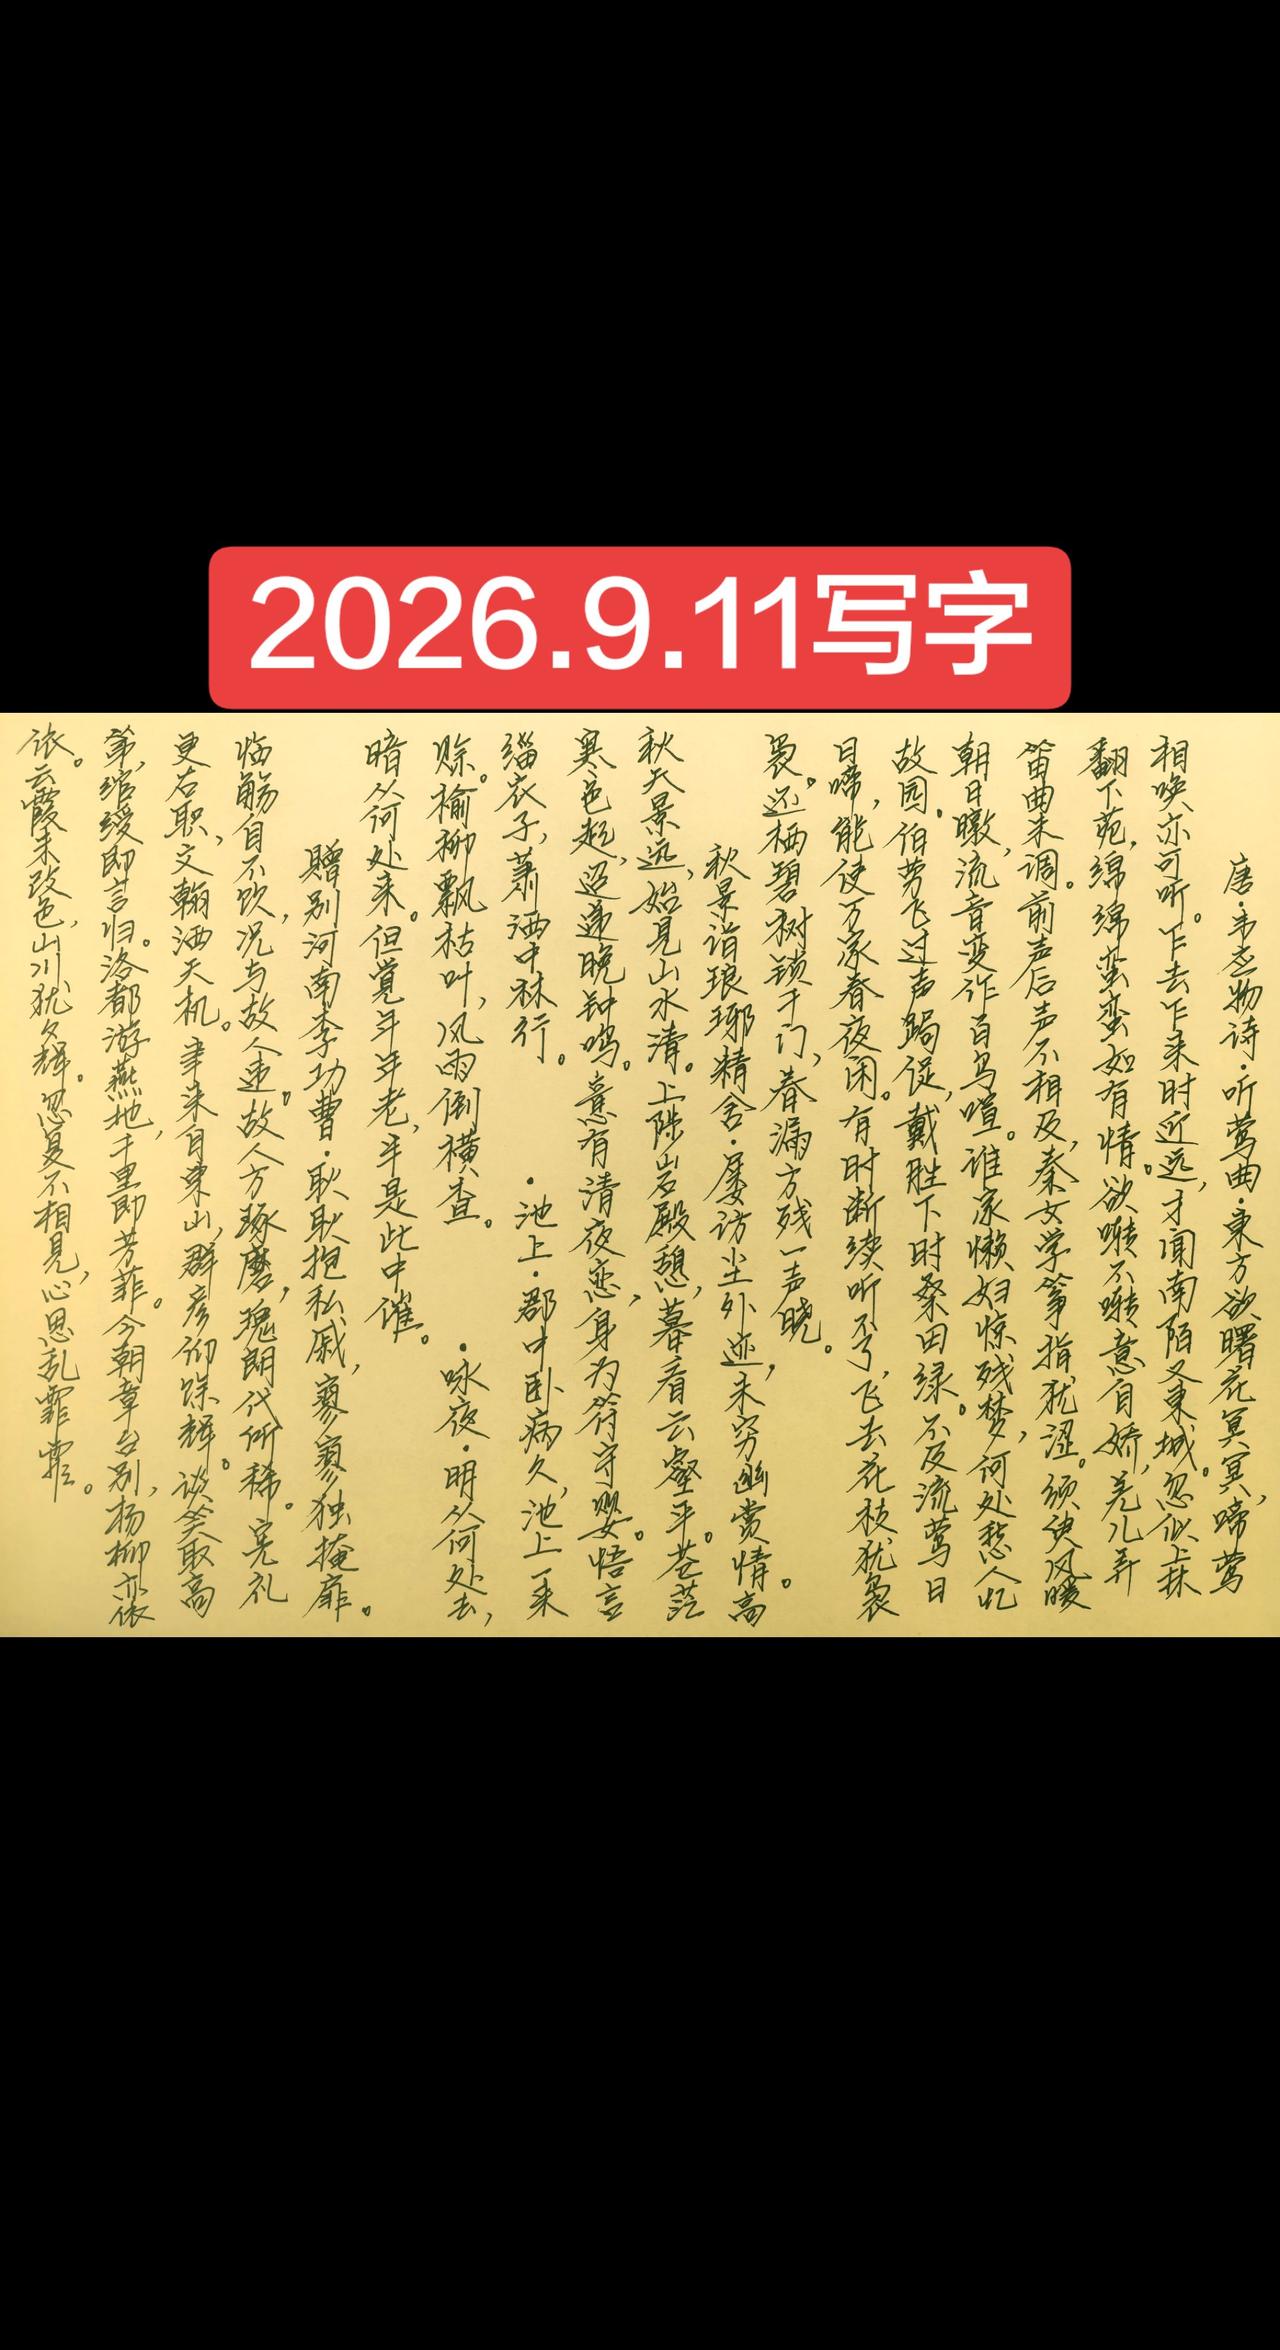 2026.9.11写字
唐·韦应物诗·听莺曲·东方欲曙花冥冥,啼莺
相唤亦可听。乍去乍来时近远,才闻南陌又东城。忽似上林
翻下苑,绵绵蛮蛮如有情。欲啭不啭意自娇,羌儿弄
笛曲未调。前声后声不相及,秦女学筝指犹涩。须臾风暖
朝日暾,流音变作百鸟喧。谁家懒妇惊残梦,何处愁人忆
故园。伯劳飞过声跼促,戴胜下时桑田绿。不及流莺日
日啼,能使万家春夜闲。有时断续听不了,飞去花枝犹袅
袅。还栖碧树锁千门,春漏方残一声晓。
秋景诣琅琊精舍·屡访尘外迹,未穷幽赏情。高
秋天景远,始见山水清。上陟岩殿憩,暮看云壑平。苍茫
寒色起,迢递晚钟鸣。意有清夜恋,身为符守婴。悟言
缁衣子,萧洒中林行。
·池上·郡中卧病久,池上一来
赊。榆柳飘枯叶,风雨倒横查。
·咏夜·明从何处去,
暗从何处来。但觉年年老,半是此中催。
赠别河南李功曹·耿耿抱私戚,寥寥独掩扉。
临觞自不饮,况与故人违。故人方琢磨,瑰朗代所稀。宪礼
更右职,文翰洒天机。聿来自东山,群彦仰馀辉。谈笑取高
第,绾绶即言归。洛都游燕地,千里即芳菲。今朝章台别,杨柳亦依
依。云霞未改色,山川犹夕辉。忽复不相见,心思乱霏霏。